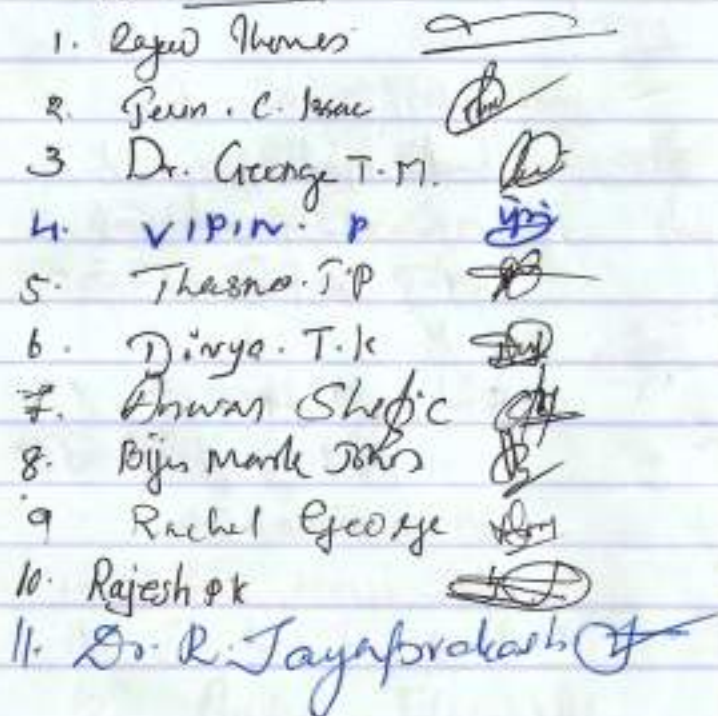 1. Rajeev Thomas
2. Jerin. C. Issac
3 Dr. George T.M.
4. VIPIN. P
5. Thasna. T.P
6. Divya. T.K
7. Anwar Shefic
8. Biju Mark Johns
9 Rachel George
10. Rajesh PK
11. Dr. R. Jayaprakash